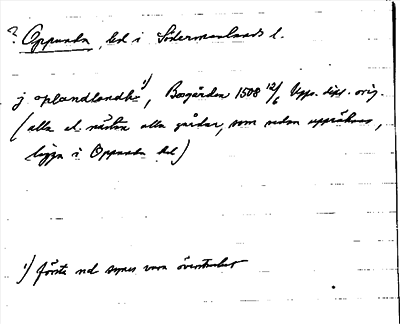 ? Oppunda, hd i Södermanlands l.
j oplandlandh 1), Bosgården 1508 12/6 Upps. dipl. orig.
(alla el. nästan alla gårdar, som sedan uppräknas,
ligga i Oppunda hd)
1) förste nd synes vara överstruket